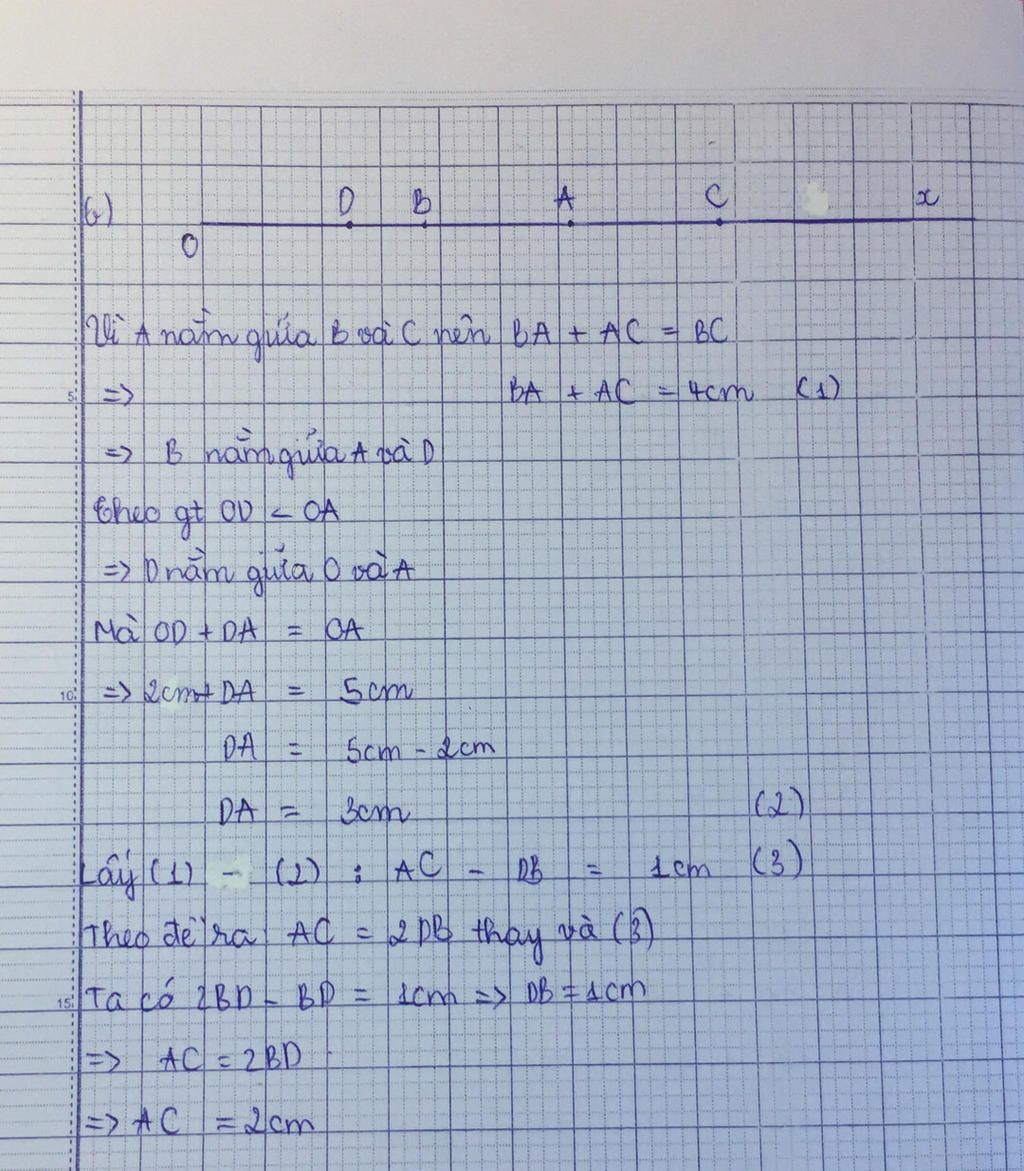 b) D B A C x
O
Vì A nằm giữa B và C nên BA + AC = BC
5 => BA + AC = 4cm (1)
=> B nằm giữa A và D
Theo gt OD < OA
=> D nằm giữa O và A
Mà OD + DA = OA
10 => 2cm + DA = 5cm
DA = 5cm - 2cm
DA = 3cm (2)
Lấy (1) - (2) : AC - DB = 1cm (3)
Theo đề ra AC = 2DB thay và (3)
15 Ta có 2BD - BD = 1cm => DB = 1cm
=> AC = 2BD
=> AC = 2cm